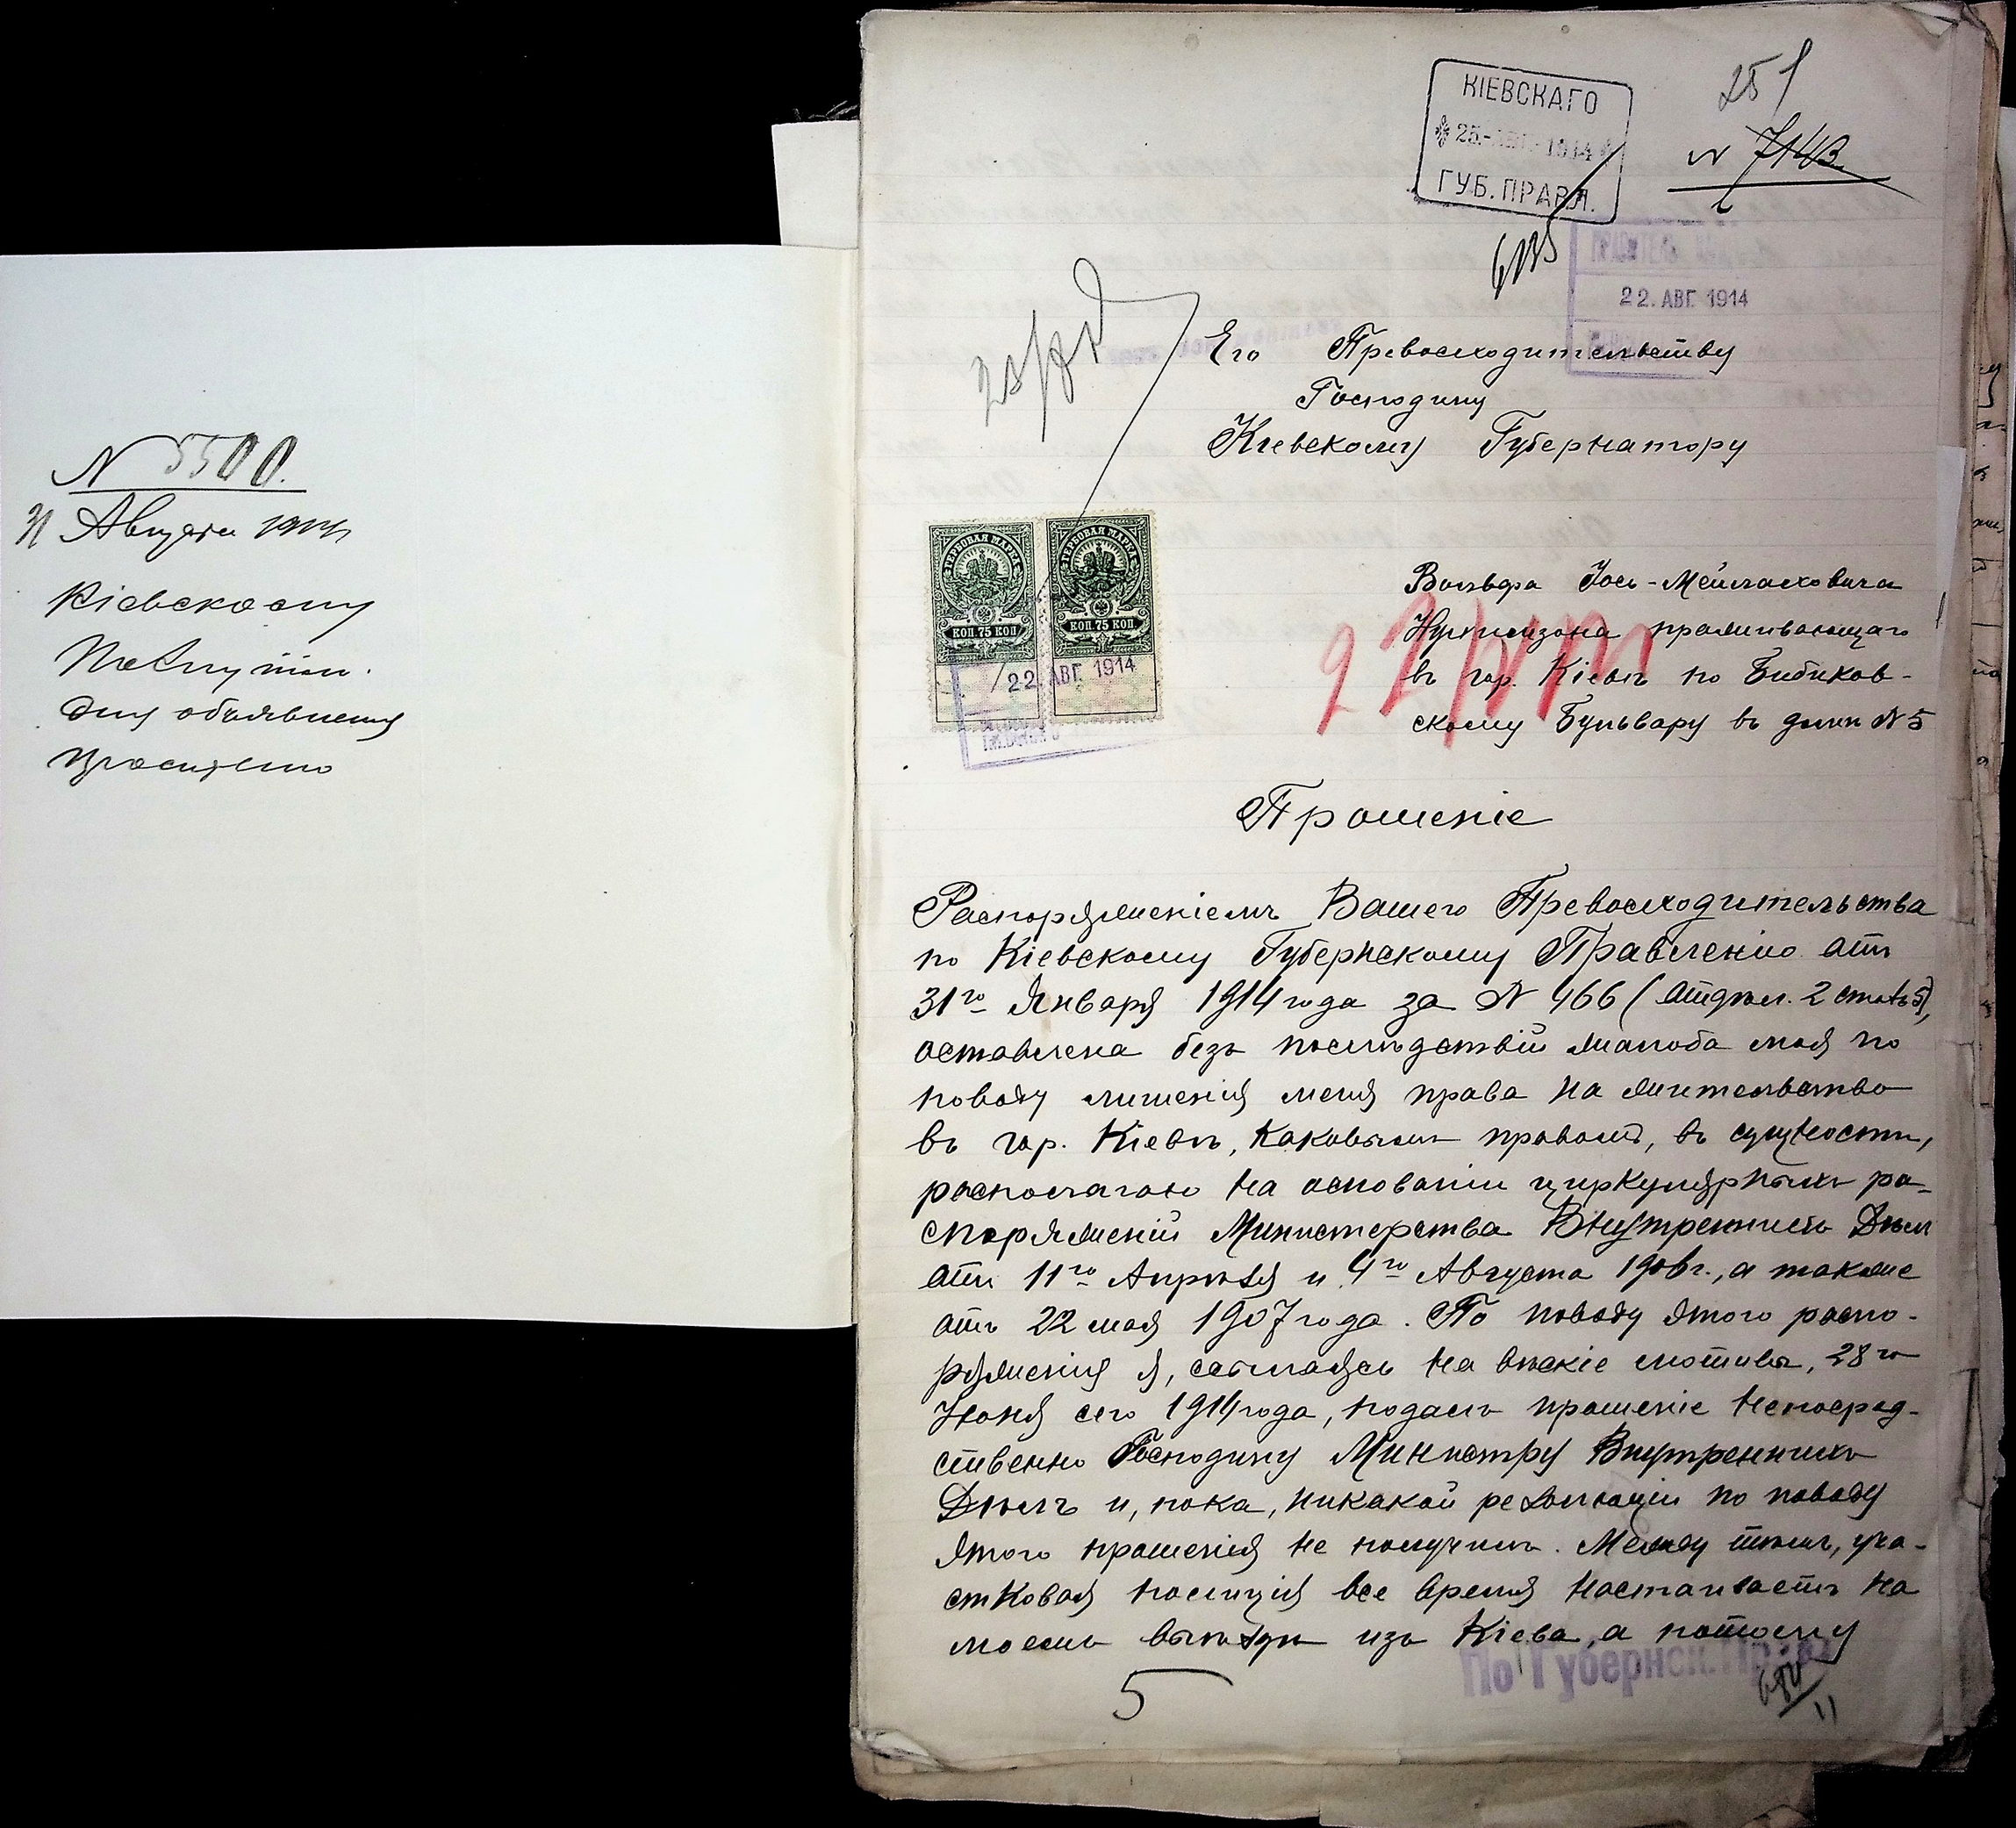 N 5500.
31 Августа 1914
Кіевскому
Полиціим.
для объявленія
просителю
КІЕВСКАГО
25 АВГ. 1914
ГУБ. ПРАВЛ.
251
N 7143
22. АВГ. 1914
Его Превосходительству
Господину
Кіевскому Губернатору
ГЕРБОВАЯ МАРКА ГЕРБОВАЯ МАРКА
КОП. 75 КОП КОП. 75 КОП
22 АВГ. 1914
Вольфа Іось-Мейлаховича
проживающаго
въ гор. Кіевѣ по Бибиков-
скому Бульвару въ домѣ N 5
Прошеніе
Распоряженіемъ Вашего Превосходительства
по Кіевскому Губернскому Правленію отъ
31го Января 1914 года за N 466 (отдѣл. 2 столъ 5),
оставлена безъ послѣдствій жалоба моя по
поводу лишенія меня права на жительство
въ гор. Кіевѣ, каковымъ правомъ, въ сущности,
располагаю на основаніи циркулярныхъ ра-
споряженій Министерства Внутреннихъ Дѣлъ
отъ 11го Апрѣля и 4го Августа 1906 г., а также
отъ 22 мая 1907 года. По поводу этого распо-
ряженія я, ссылаясь на вѣскіе мотивы, 28го
Іюня сего 1914 года, подалъ прошеніе непосред-
ственно Господину Министру Внутреннихъ
Дѣлъ и, пока, никакой резолюціи по поводу
этого прошенія не получилъ. Между тѣмъ, уча-
стковая полиція все время настаиваетъ на
моемъ выѣздѣ изъ Кіева, а потому
По Губернск. Пр
5